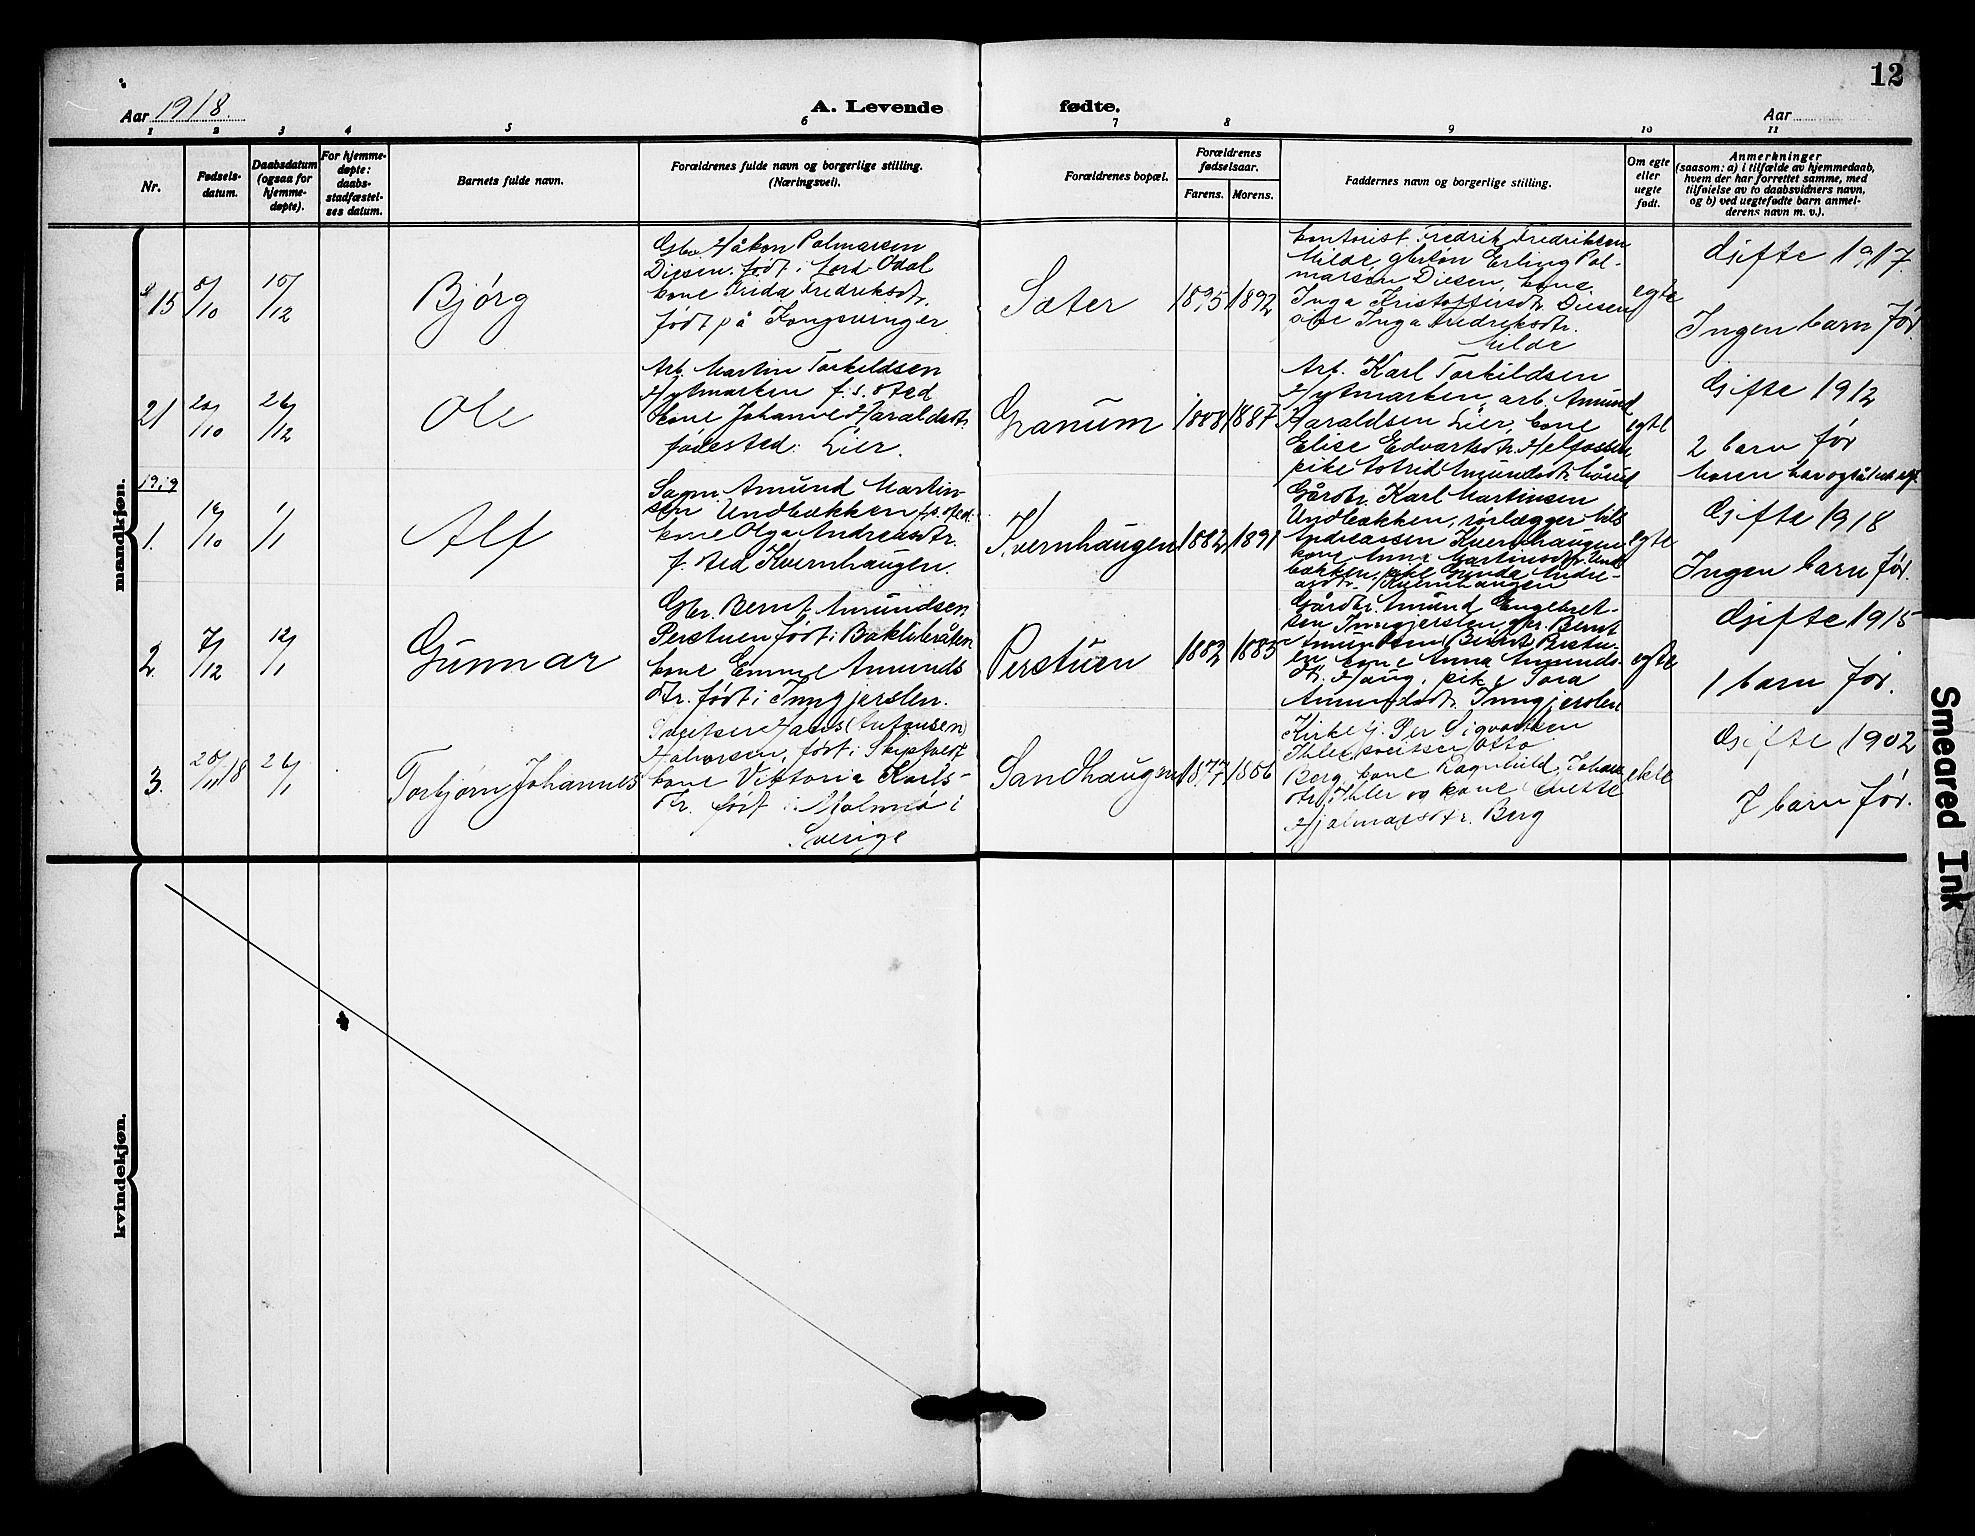 12
Aar 1918.
A. Levende fødte.
Aar
1 2 3 4 5 6 7 8 9 10 11
Nr.
Fødsels-
datum.
Daabsdatum
(ogsaa for
hjemme-
døpte).
For hjemme-
døpte:
daabs-
stadfæstel-
ses datum.
Barnets fulde navn.
Forældrenes fulde navn og borgerlige stilling.
(Næringsvei).
Forældrenes bopæl.
Forældrenes
fødselsaar.
Farens. Morens.
Faddernes navn og borgerlige stilling.
Om egte
eller
uegte
født.
Anmerkninger
(saasom: a) i tilfælde av hjemmedaab,
hvem der har forrettet samme, med
tilføielse av to daabsvidners navn,
og b) ved uegtefødte barn anmel-
derens navn m. v.).
mandkjøn.
15
8/10
10/12
Bjørg
Gbr. Håkon Palmarsen
Diesen født i Nord Odal
kone Frida Fredriksdtr.
født på Kongsvinger
Sæter
1895 1892
kontorist Fredrik Fredriksen
Milde, Erling Pal-
marsen Diesen, kone
Inga Kristoffersdtr Diesen
Inga Fredriksdtr.
Milde
egte
Gifte 1917.
Ingen barn før.
21
20/10
26/12
Ole
Arb. Martin Torkildsen
Hytmarken f. s. sted
Kone Johanne Haraldsdtr.
fødested: Lier.
Granum
1888 1887
Arb. Karl Torkildsen
Hytmarken, arb Amund
Haraldsen Lier, kone
Elise Edvartsdtr.
pike Astrid Amundsdtr
egte
Gifte 1912
2 barn før
1919
1.
16/10
1/1
Alf
Sagm. Amund Martin-
sen Undbakken f. s. sted.
kone Olga Andreasdtr.
f. sted Kvernhaugen.
Kvernhaugen
1882 1891
Gårdbr. Karl Martinsen
Undbakken, rørlægger Nils
Andreassen Kvernhaugen
kone Anna Martinsdtr. Und-
bakken, pike Gunda Andre-
asdtr. Kvernhaugen
egte
Gifte 1918
Ingen barn før.
2.
7/12
12/1
Gunnar
Gbr. Bernt Amundsen
Perstuen født i Baklibråten
kone Emma Amunds
dtr. født i Inngjerslen.
Perstuen
1882 1883
Gårdbr. Amund Engebret-
sen Inngjerslen, gbr. Bernt
kone Anna Amunds-
dtr. Haug, pike Tora
Amundsdtr. Inngjerslen
egte
Gifte 1915
1 barn før.
3.
25/11 18
26/1
Torbjørn Johannes
Halvorsen, født i
kone Viktoria Karls-
dtr. født i Malmø i
Sverige
Sandhaugen
1877 1886
Kirkesj. Per Sigvartsen
Ihle, Otto
Berg, kone Ragnhild Johans
dtr. Ihler og kone Anette
Hjalmarsdtr. Berg
ekte
Gifte 1902
7 barn før.
kvindekjøn.
Smeared Ink